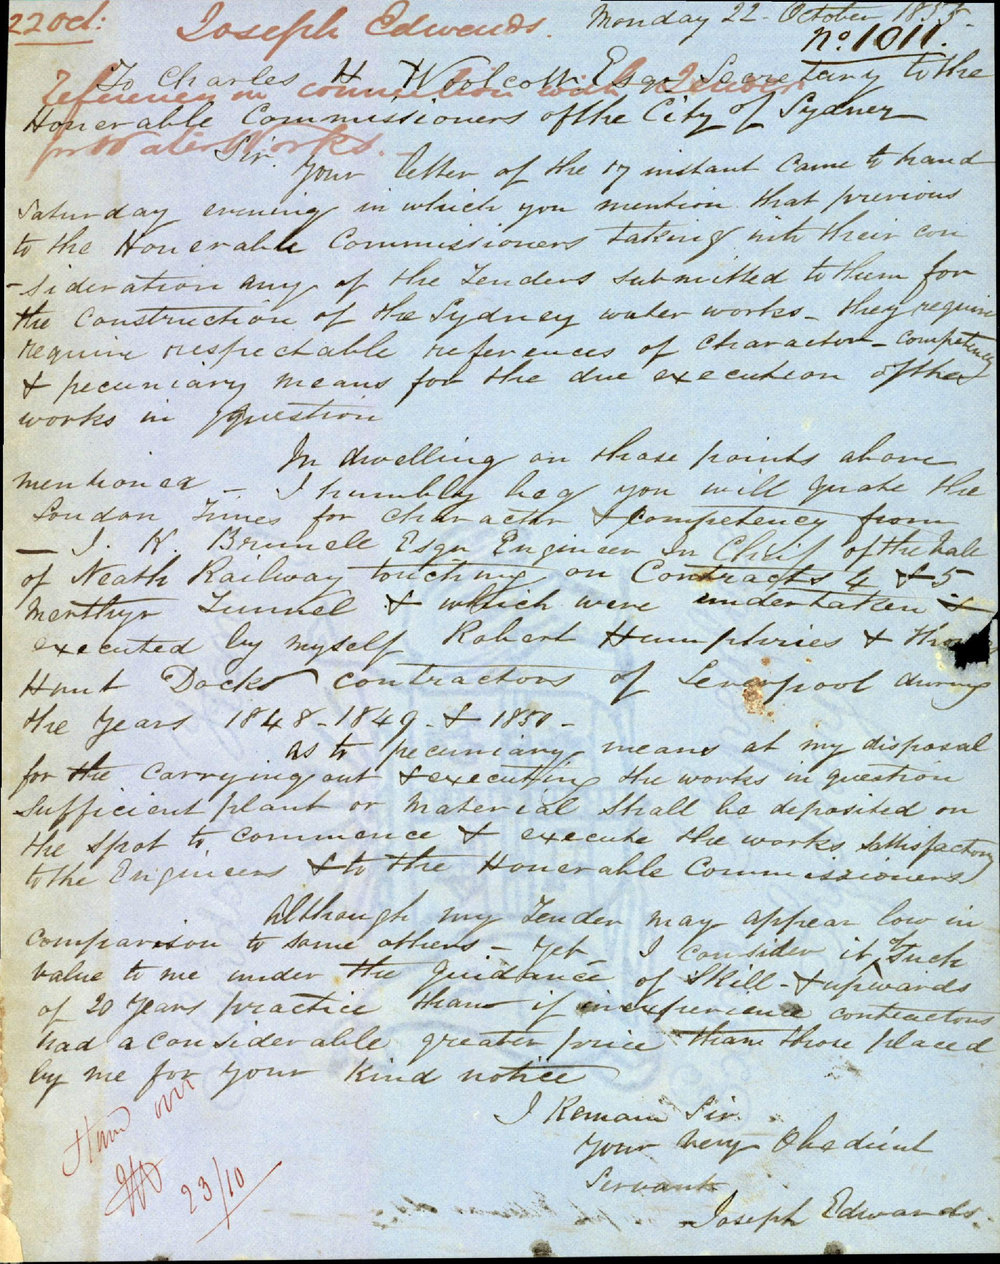 22 Oct:
Joseph Edwards.
Monday 22 - October 1855 -
no. 1011.
To Charles H Woolcott Esqr Secretary to the
Reference in connection with Tender
Honerable Commissioners of the City of Sydney
for Water Works. -
Sir Your letter of the 17 instant came to hand
Saturday evening in which you mention that previous
to the Honerable Commissioners taking into their con
- sideration any of the Tenders submitted to them for
the construction of the Sydney water works - they require
require respectable references of character - competency
& pecuniary means for the due execution of the
works in question
In dwelling on those points above
mentioned - I humbly beg you will quote the
London Times for character & competency from
- I. K. Brunell Esqr Engineer in Chief of the Vale
of Neath Railway touching on Contracts 4 & 5
Merthyr Tunnel & which were undertaken &
executed by myself Robert Humphries &
Hunt Docks contractors of Leverpool during
the years 1848 - 1849 - & 1850 -
as to pecuniary means at my disposal
for the carrying out & executing the works in question
sufficient plant or material shall be deposited on
the spot to commence & execute the works sattisfactory
to the Engineers & to the Honerable Commissioners
Although my Tender may appear low in
comparison to some others - yet I consider it of such
value to me under the guidance of skill - & upwards
of 20 years practice than if inexperience contractors
had a considerable greater price than those placed
by me for your kind notice
I Remain Sir
Your Very Obedient
Servant
Joseph Edwards
23/10